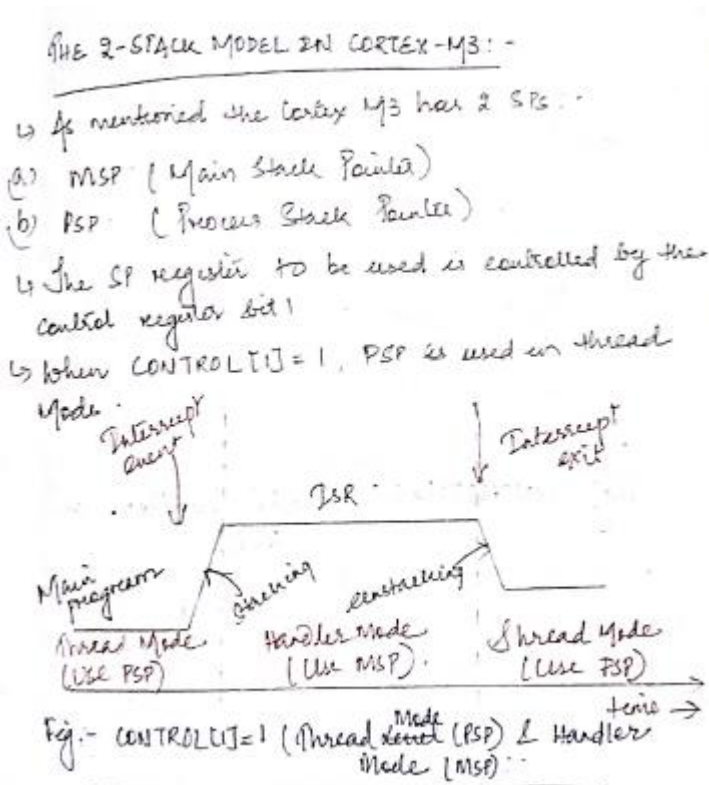 THE 2-STACK MODEL IN CORTEX-M3:-
↳ As mentioned the Cortex M3 has 2 SPs.-
(a) MSP (Main Stack Pointer)
(b) PSP (Process Stack Pointer)
↳ The SP register to be used is controlled by the
control register bit 1
↳ When CONTROL[1]=1, PSP is used in thread
Mode.
Interrupt
event
Interrupt
exit
ISR
Main
program
stacking
unstacking
Thread Mode
(Use PSP)
Handler Mode
(Use MSP).
Thread Mode
(Use PSP)
time →
Fig:- CONTROL[1]=1 (Thread Mode (PSP) & Handler
Mode (MSP)